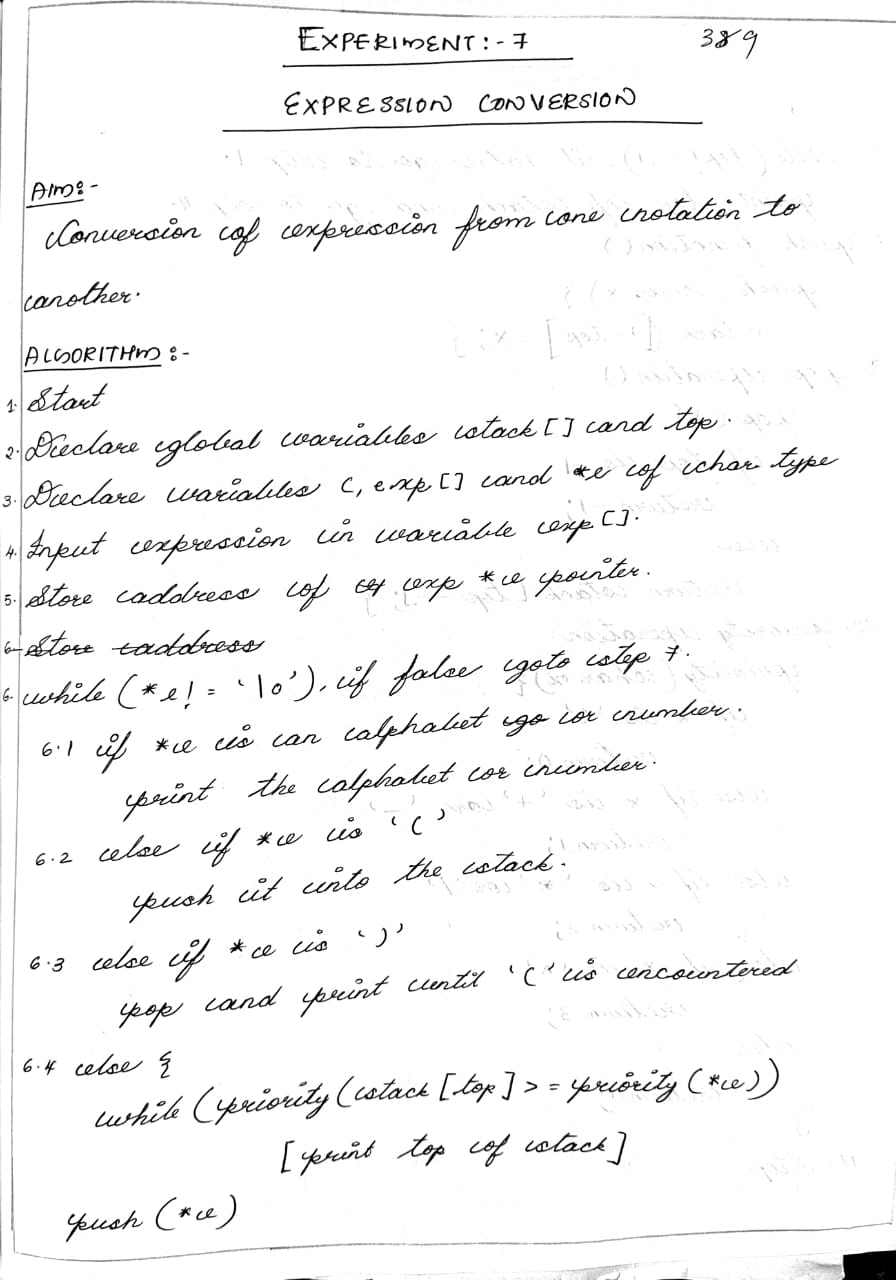 EXPERIMENT:-7
389
EXPRESSION CONVERSION
AIM:-
Conversion of expression from one notation to
another.
ALGORITHM:-
1. Start
2. Declare global variables stack[] and top.
3. Declare variables C, exp[] and *e of char type
4. Input expression in variable exp[].
5. Store address of exp *e pointer.
6. Store address
6. while (*e! = '\0'), if false goto step 7.
6.1 if *e is an alphabet go or number.
print the alphabet or number.
6.2 else if *e is '('
push it into the stack.
6.3 else if *e is ')'
pop and print until '(' is encountered
6.4 else {
while (priority (stack [top] > = priority (*e))
[print top of stack]
push (*e)